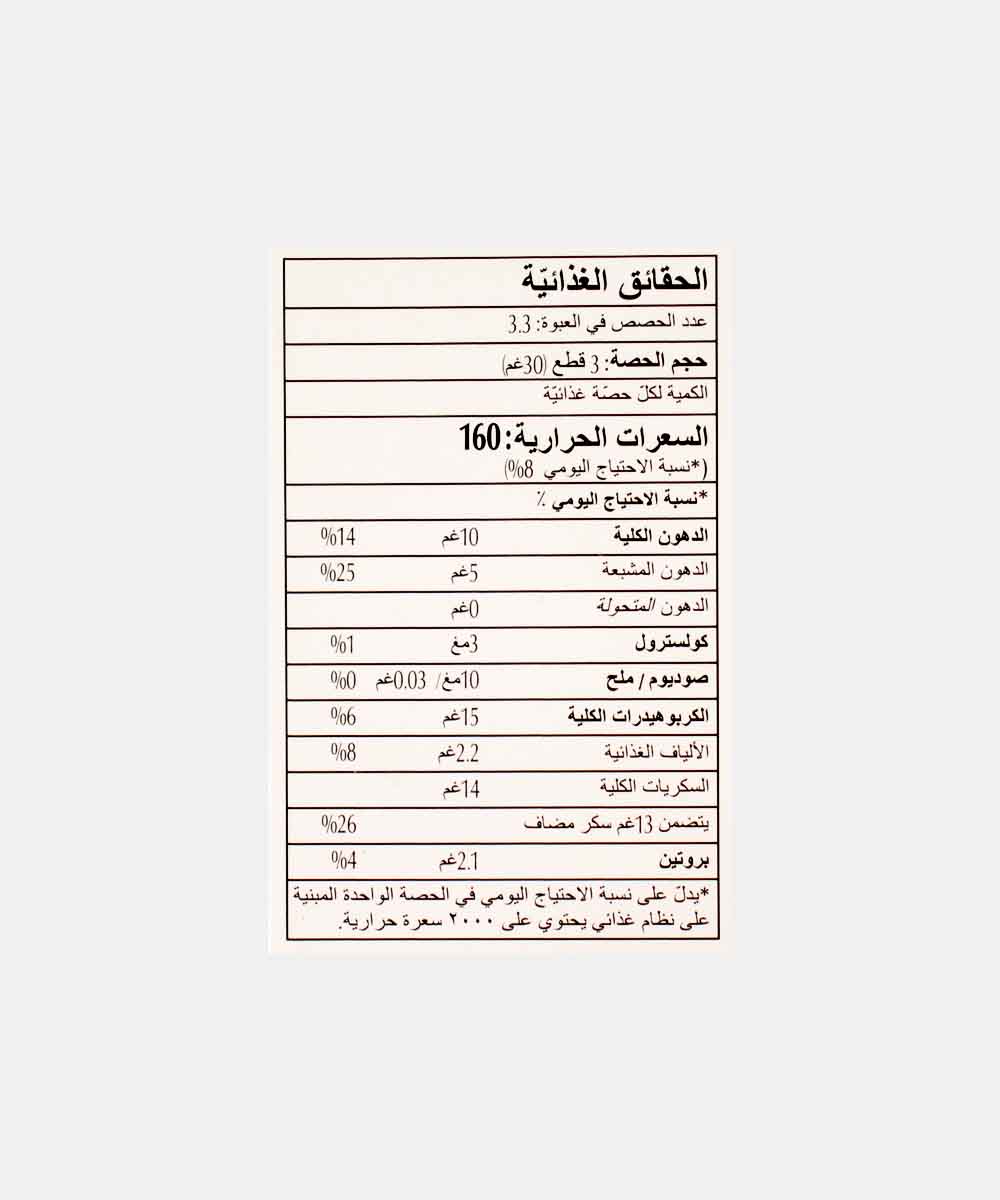 الحقائق الغذائيّة
عدد الحصص في العبوة: 3.3
حجم الحصة: 3 قطع (30غم)
الكمية لكلّ حصّة غذائيّة
السعرات الحرارية: 160
(*نسبة الاحتياج اليومي 8%)
*نسبة الاحتياج اليومي ٪
الدهون الكلية 10غم 14%
الدهون المشبعة 5غم 25%
الدهون المتحولة 0غم
كولسترول 3مغ 1%
صوديوم / ملح 10مغ/ 0.03غم 0%
الكربوهيدرات الكلية 15غم 6%
الألياف الغذائية 2.2غم 8%
السكريات الكلية 14غم
يتضمن 13غم سكر مضاف 26%
بروتين 2.1غم 4%
*يدلّ على نسبة الاحتياج اليومي في الحصة الواحدة المبنية
على نظام غذائي يحتوي على ٢٠٠٠ سعرة حرارية.